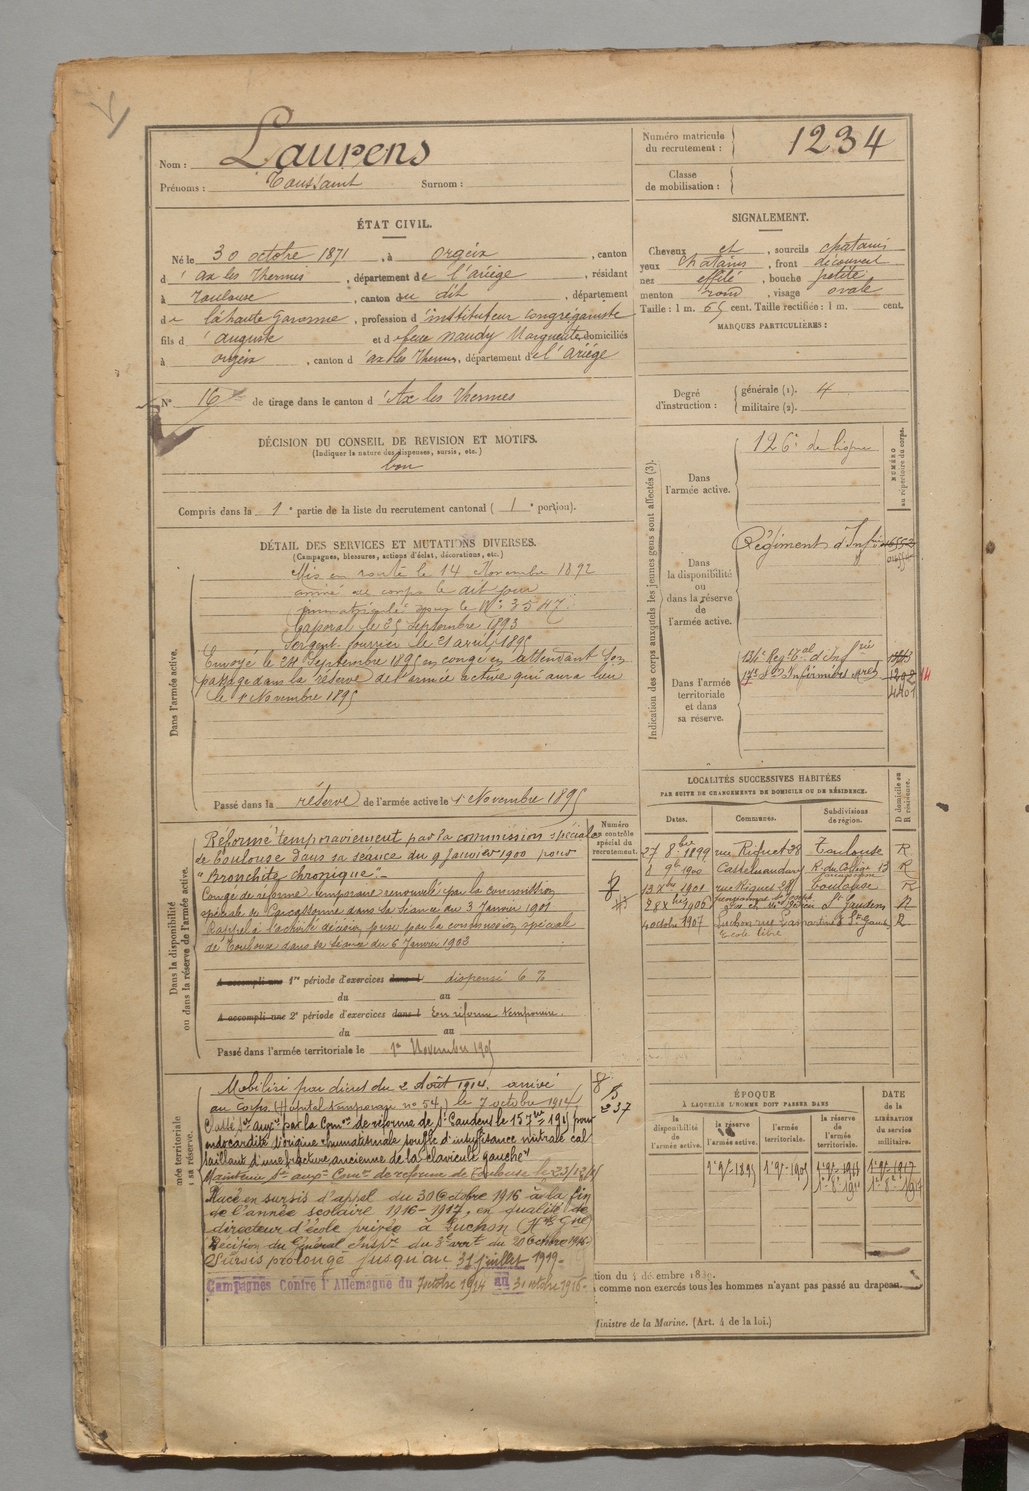 Nom : Laurens
Prénoms : Toussaint Surnom :
Numéro matricule du recrutement : 1234
Classe de mobilisation :
ÉTAT CIVIL.
Né le 30 octobre 1871, à Orgeix, canton
d'ax les Thermes, département de l'ariège, résidant
à Toulouse, canton du dit, département
de la haute Garonne, profession d'instituteur congréganiste
fils d'auguste et de feue Naudy Marguerite domiciliés
à orgeix, canton d'ax les Thermes, département de l'Ariège
N° 16 de tirage dans le canton d'Ax les Thermes
SIGNALEMENT.
Cheveux et, sourcils chatains
yeux chatains, front découvert
nez effilé, bouche petite
menton rond, visage ovale
Taille : 1 m. 65 cent. Taille rectifiée : 1 m. cent.
MARQUES PARTICULIÈRES :
Degré d'instruction : générale (1). 4
militaire (2).
DÉCISION DU CONSEIL DE REVISION ET MOTIFS.
(Indiquer la nature des dispenses, sursis, etc.)
bon
Compris dans la 1e partie de la liste du recrutement cantonal (1e portion).
DÉTAIL DES SERVICES ET MUTATIONS DIVERSES.
(Campagnes, blessures, actions d'éclat, décorations, etc.)
Dans l'armée active.
Mis en route le 14 Novembre 1892
arrivé au corps le dit jour
immatriculé sous le N° 3547
Caporal le 25 Septembre 1893
Sergent fourrier le 21 avril 1895
Envoyé le 24 Septembre 1895 en congé en attendant son
passage dans la réserve de l'armée active qui aura lieu
le 1er Novembre 1895
Passé dans la réserve de l'armée active le 1er Novembre 1895
Indication des corps auxquels les jeunes gens sont affectés (3).
NUMÉRO au répertoire du corps.
Dans l'armée active. 126e de ligne
Dans la disponibilité ou dans la réserve de l'armée active.
Régiment d'Infie
Dans l'armée territoriale et dans sa réserve.
134e Regt Tal d'Infrie
17e Son Infirmiers Mres
1292
4401
LOCALITÉS SUCCESSIVES HABITÉES
PAR SUITE DE CHANGEMENTS DE DOMICILE OU DE RÉSIDENCE.
Dates. Communes. Subdivisions de région. D domicile ou R résidence.
27 8bre 1899 rue Riquet 28 Toulouse R
Castelnaudary R. du Collège 13 R
13 Xbre 1901 rue Riquet 28 Toulouse R
St Gaudens R
4 Octobre 1907 Luchon rue Lamartine St Gaud. R
Ecole libre
Numéro au contrôle spécial du recrutement.
Dans la disponibilité ou dans la réserve de l'armée active.
Réformé temporairement par la commission spéciale
de Toulouse dans sa séance du 9 Janvier 1900 pour
"Bronchite chronique"
Congé de réforme temporaire renouvelé par la commission
spéciale de Carcassonne dans sa séance du 3 Janvier 1901
Rappelé à l'activité décision prise par la commission spéciale
de Toulouse dans sa séance du 6 Janvier 1903
A accompli une 1re période d'exercices dans l dispensé 6 %
du au
A accompli une 2e période d'exercices dans l En réforme temporaire.
du au
Passé dans l'armée territoriale le 1er Novembre 1905
mée territoriale
sa réserve.
Mobilisé par décret du 2 Août 1914. arrivé
au Corps (Hôpital temporaire n° 54) le 7 octobre 1914
Classé Sce auxre par la Comon de réforme de St Gaudens le 15 7bre 1915 pour
endocardite d'origine rhumatismale souffle d'insuffisance mitrale cal
saillant d'une fracture ancienne de la clavicule gauche"
Maintenu Sce auxre Comon de réforme de Toulouse le 23/12/15
Placé en sursis d'appel du 30 Octobre 1916 à la fin
de l'année scolaire 1916-1917, en qualité de
directeur d'école privée à Luchon (Hte Gne)
Décision du Général Inspr du 3e arrt du 20 Octobre 1916
Sursis prolongé jusqu'au 31 juillet 1919.
Campagnes Contre l'Allemagne du 7 octobre 1914 au 31 octobre 1916
8
237
ÉPOQUE
À LAQUELLE L'HOMME DOIT PASSER DANS
la disponibilité de l'armée active. la réserve de l'armée active. l'armée territoriale. la réserve de l'armée territoriale.
DATE de la LIBÉRATION du service militaire.
1er 9bre 1895 1er 9bre 1905
tion du 4 décembre 18
comme non exercés tous les hommes n'ayant pas passé au drapeau.
Ministre de la Marine. (Art. 4 de la loi.)